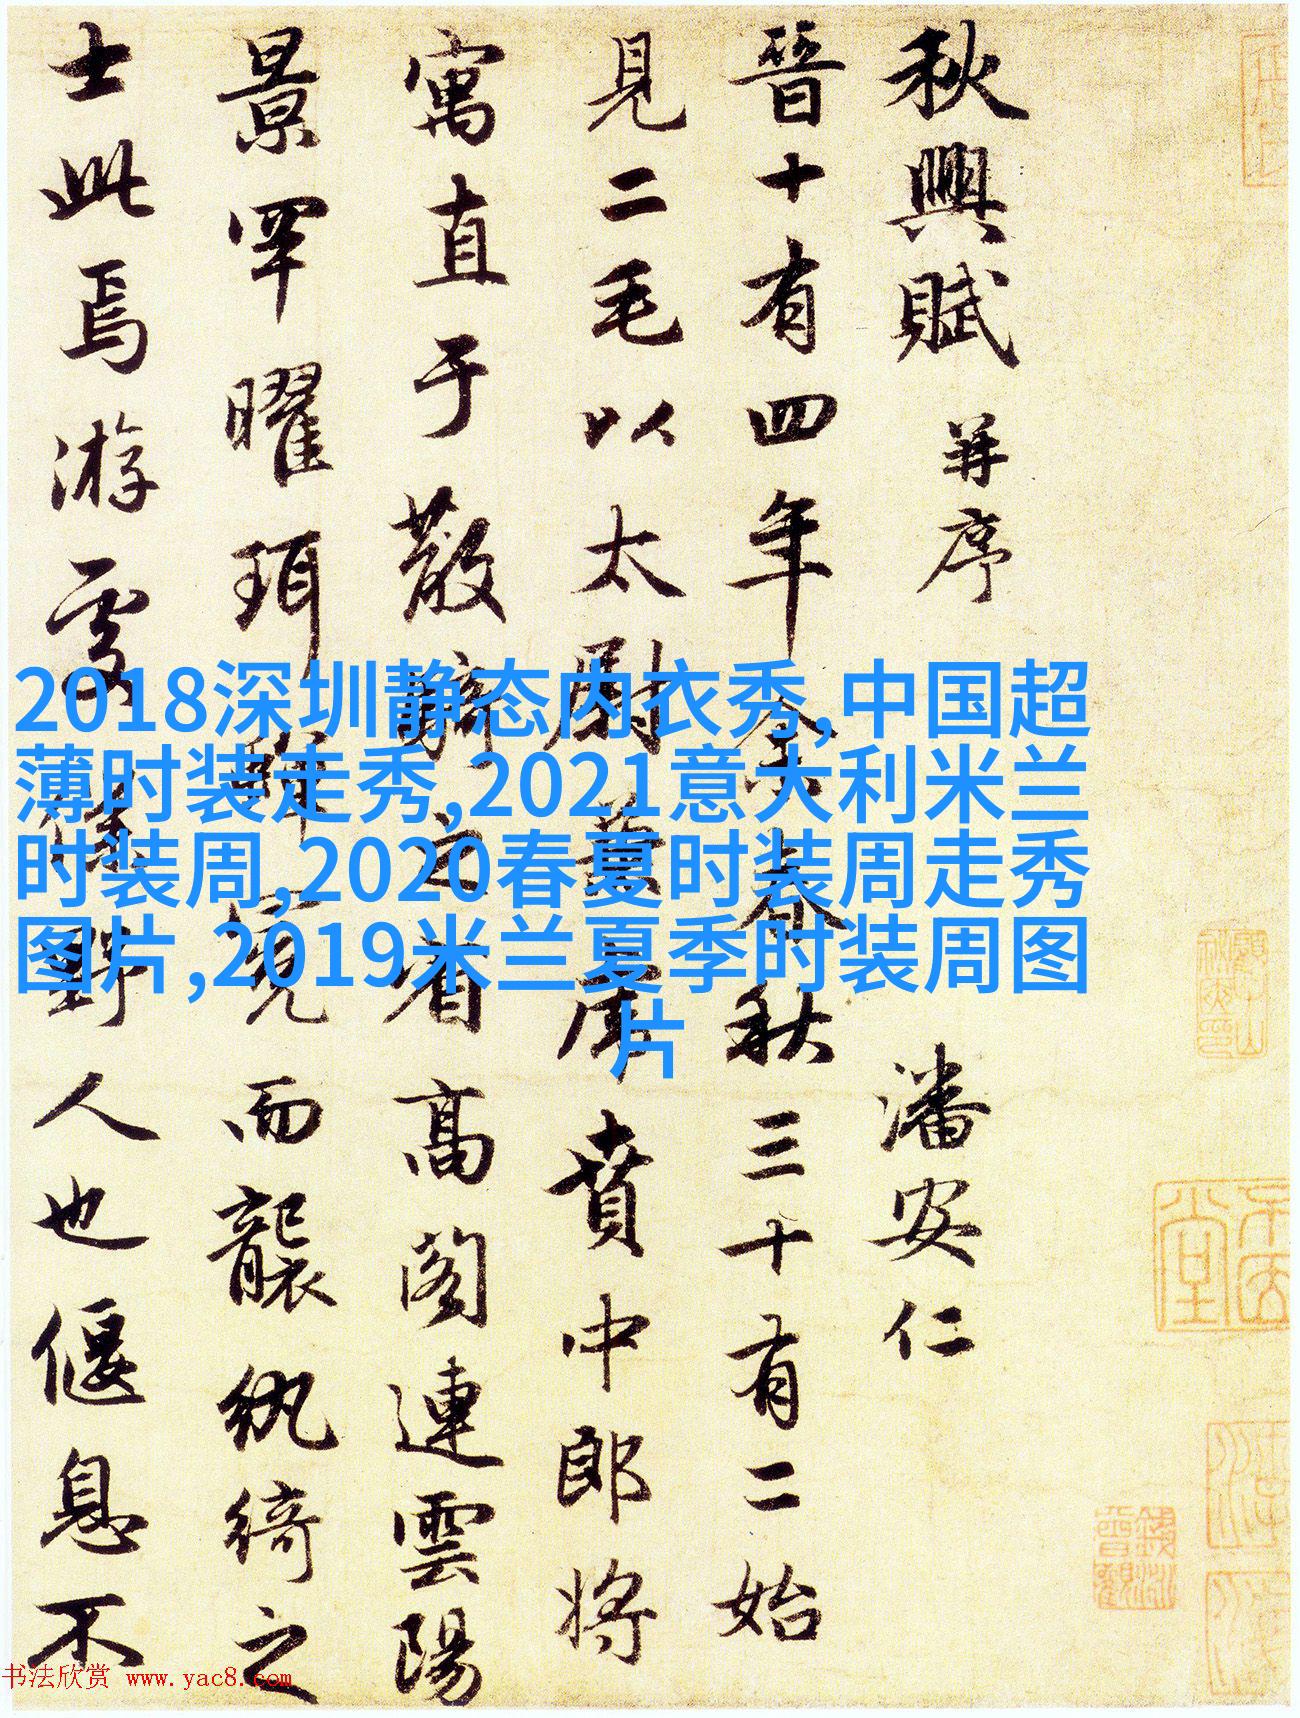 秋興賦 并序 潘安仁
晉十有四年余春秋三十有二始
見二毛以太尉兼虎賁中郎将
寓直于散騎之省高閣連雲陽
景罕曜珥蟬冕而襲紈綺之
士此焉游處僕野人也偃息不
2018深圳静态内衣秀,中国超
薄时装走秀,2021意大利米兰
时装周,2020春夏时装周走秀
图片,2019米兰夏季时装周图
片
书法欣赏 www.yac8.com